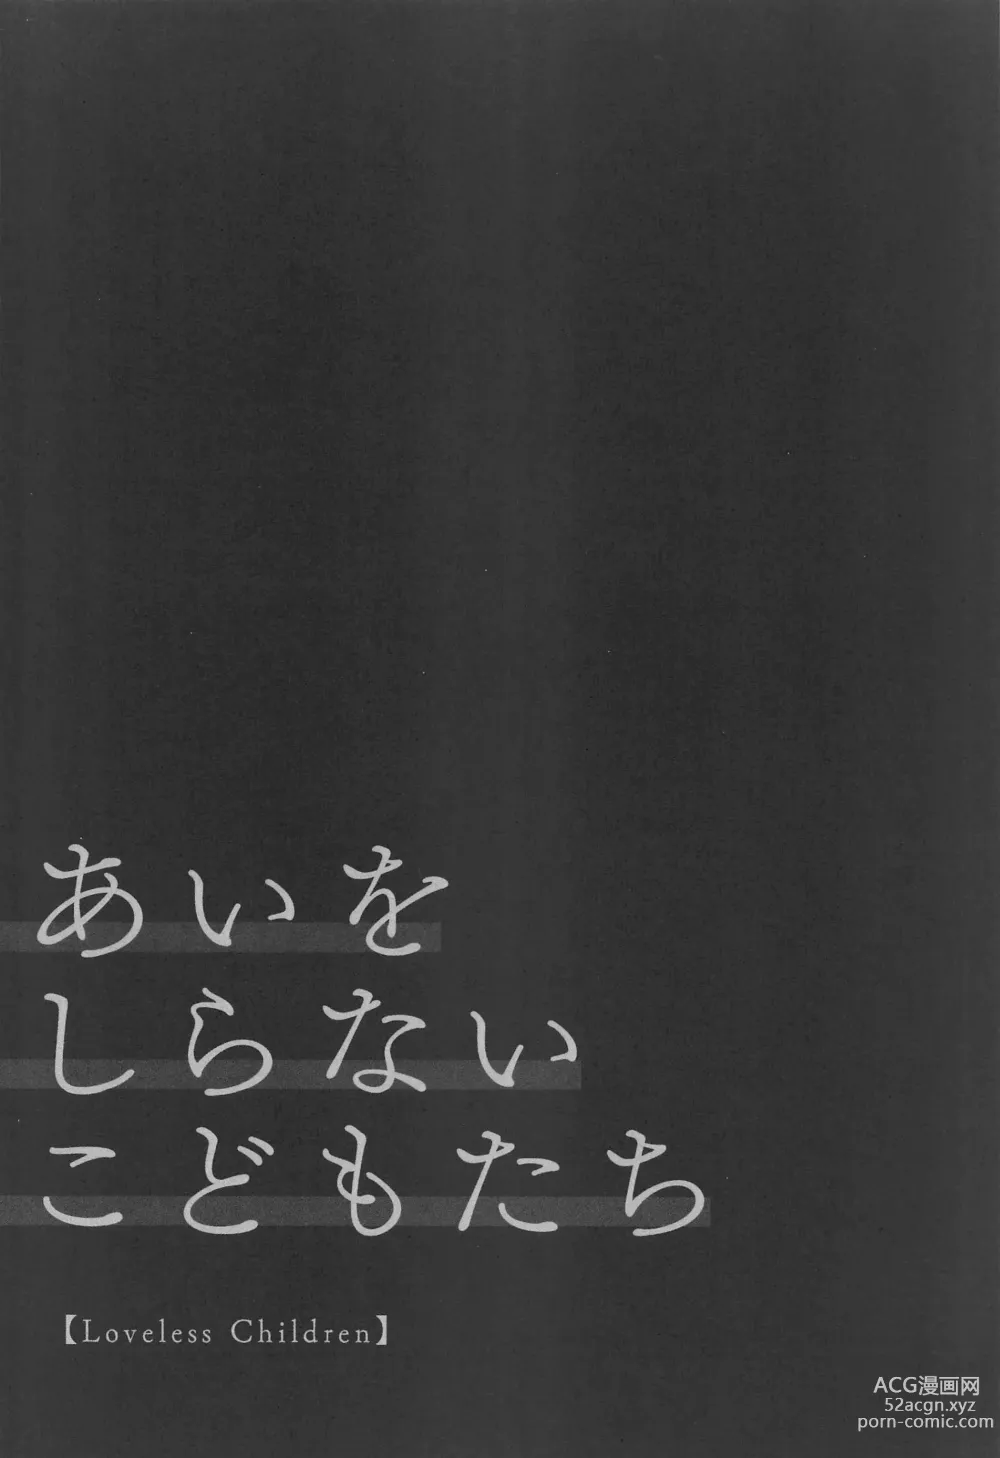 あいを
しらない
こどもたち
【Loveless Children】
ACG漫画网
52acgn.xyz
porn-comic.com